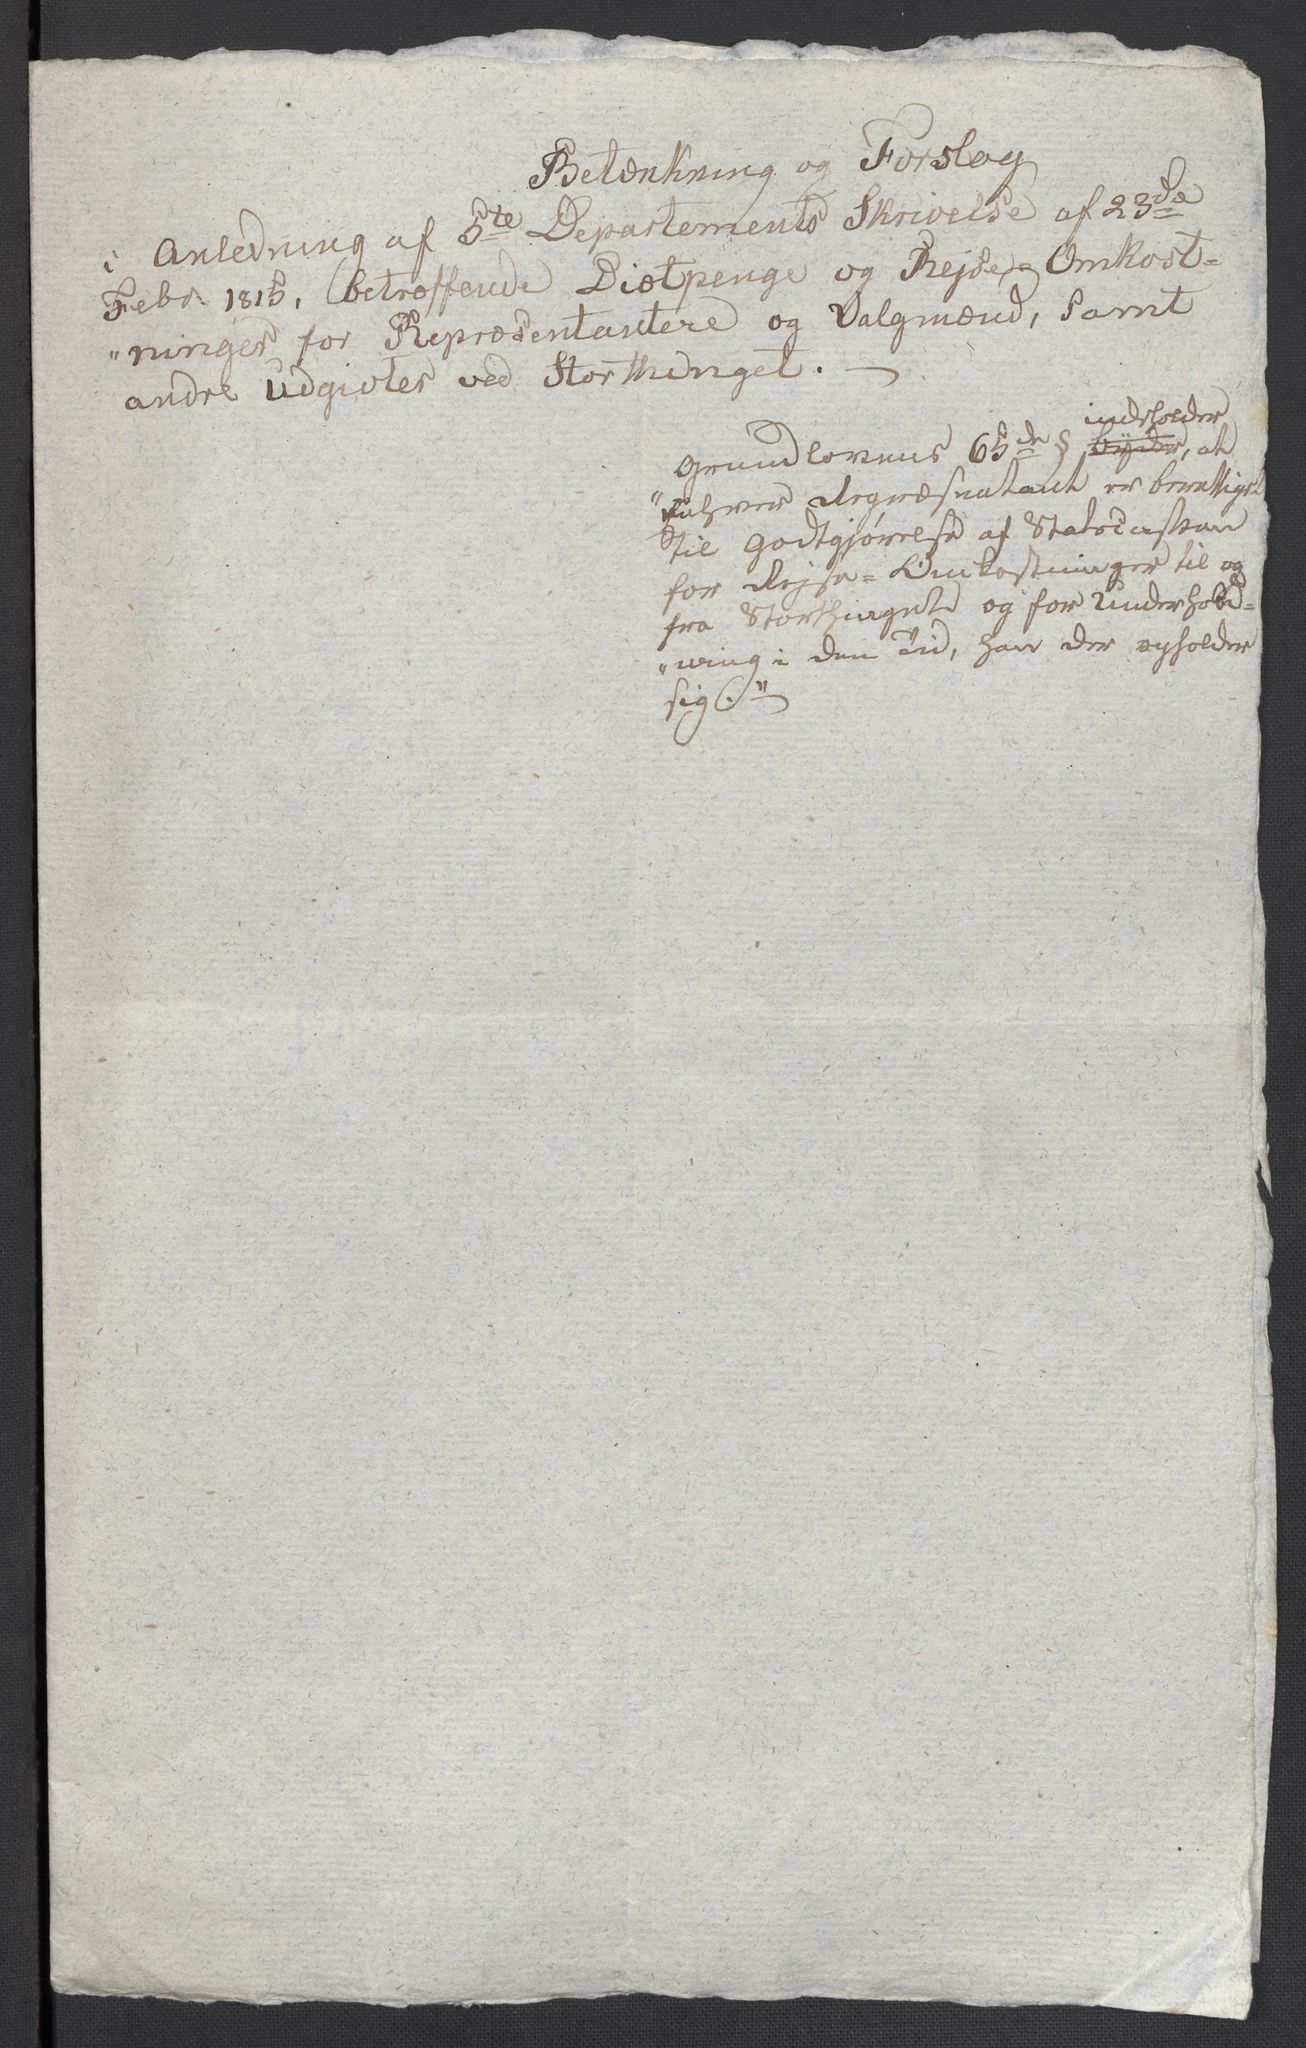 Betænkning og Forslag
i Anledning af 5te Departements Skrivelse af 23de
Febr. 1815, betreffende Diætpenge og Rejse-Omkost-
"ninger for Repræsentantere og Valgmænd, samt
andre Udgivter ved Storthinget. —
indeholder
Grundlovens 65de § byder, at
"enhver Repræsentant er berettiget
til Godtgjørelse af Statscassen
for Rejse-Omkostninger til og
fra Storthinget og for Underhold-
"ning i den Tid, han der opholder
sig."